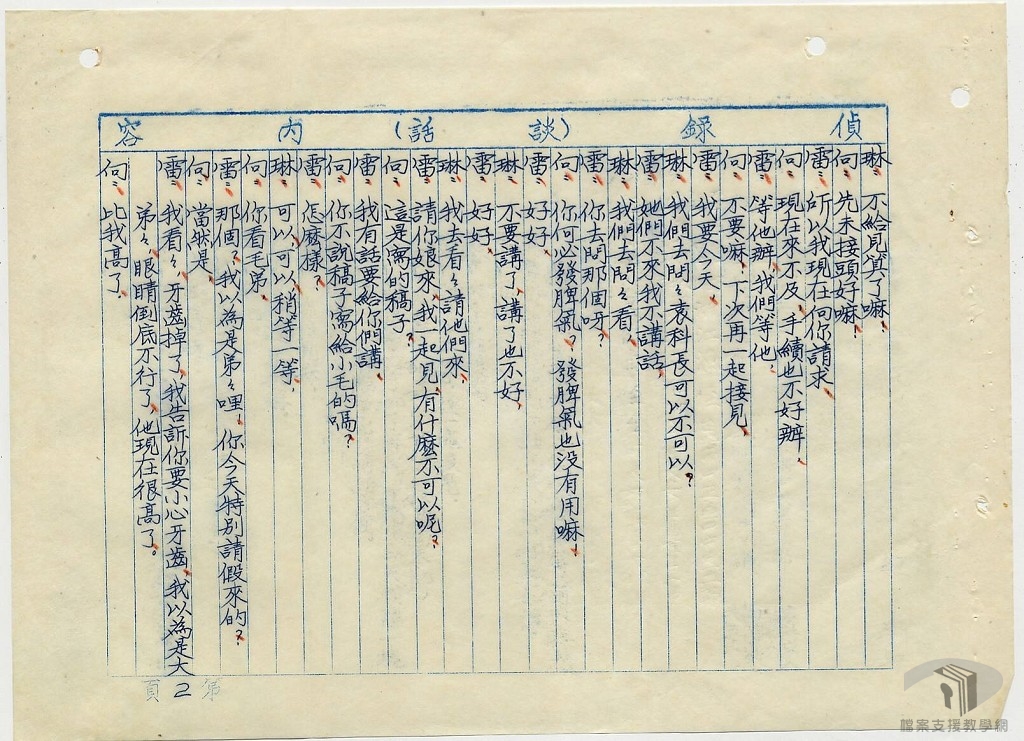 偵錄(談話)內容
琳：不給見算了嘛！
何：先未接頭好嘛！
雷：所以我現在向你請求、
何：現在來不及、手續也不好辦、
雷：等他辦、我們等他、
何：不要嘛！下次再一起接見、
雷：我要今天、
琳：我們去問々袁科長可以不可以？
雷：她們不來我不講話、
琳：我們去問々看、
雷：你去問那個呀？
何：你何必發脾氣？發脾氣也沒有用嘛！
雷：好好、
琳：不要講了、講了也不好、
雷：好好、
琳：我去看々請他們來、
雷：請你娘來、我一起見、有什麼不可以呢？
何：這是寫的稿子？
雷：我有話要給你們講、
何：你不說稿子寫給小毛的嗎？
雷：怎麼樣？
琳：可以、可以、稍等一等、
何：你看毛弟、
雷：那個？我以為是弟々哩！你今天特別請假來的？
何：當然是、
雷：我看々、牙齒掉了、我告訴你要小心牙齒、我以為是大
弟々、眼睛倒底不行了、他現在很高了。
何：比我高了、
第2頁
檔案支援教學網